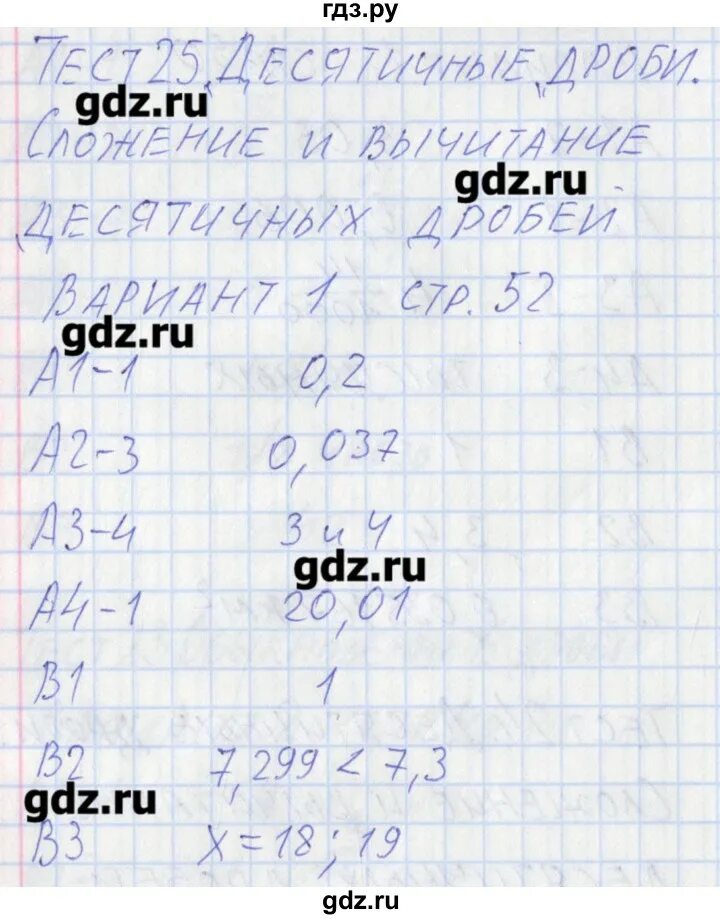 гдз.ру
Тест 25. Десятичные дроби.
gdz.ru
Сложение и вычитание
gdz.ru
десятичных дробей
Вариант 1 стр. 52
gdz.ru
А1-1 0,2
А2-3 0,037
А3-4 3 и 4
gdz.ru
А4-1 20,01
В1 1
В2 7,299 < 7,3
gdz.ru
В3 x = 18; 19
gdz.ru